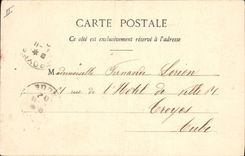 CARTE POSTALE
Ce côté est exclusivement réservé à l'adresse
Mademoiselle Fernande Lorien
51 rue de l'Hôtel de ville 51
Troyes
Aube